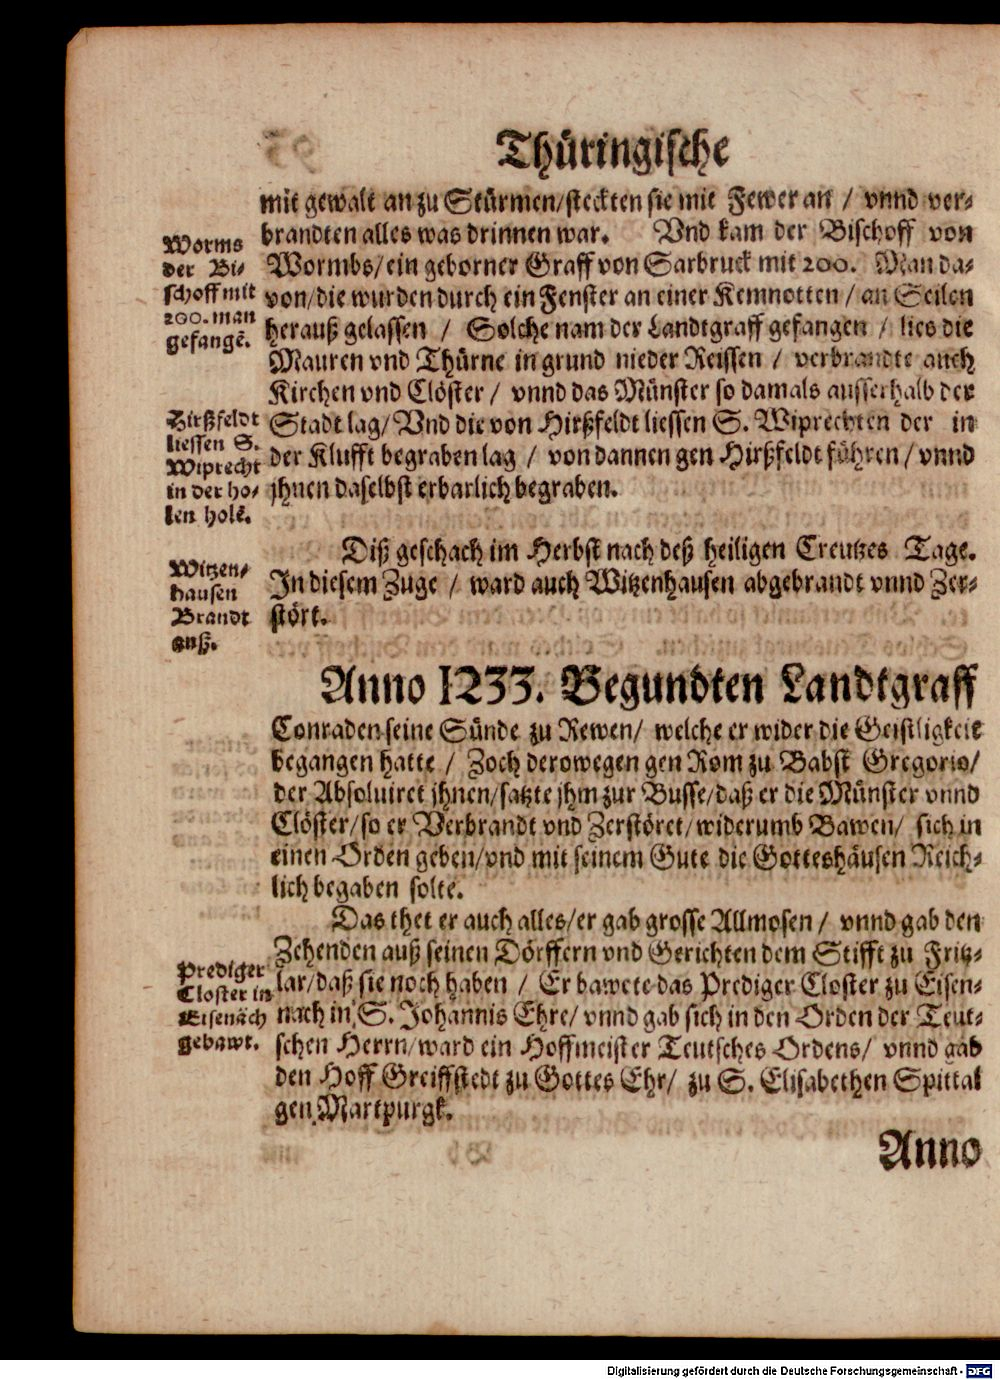 Thüringische
mit gewalt an zu Stürmen/steckten sie mit Fewer an / vnnd ver-
brandten alles was drinnen war. Vnd kam der Bischoff von
Wormbs/ein geborner Graff von Sarbruck mit 200. Man da-
von/die wurden durch ein Fenster an einer Kemnotten / an Seilen
herauß gelassen / Solche nam der Landtgraff gefangen / lies die
Mauren vnd Thürne in grund nieder Reissen / verbrandte auch
Kirchen vnd Clöster / vnnd das Münster so damals ausserhalb der
Stadt lag/ Vnd die von Hirßfeldt liessen S. Wiprechten der in
der Klufft begraben lag / von dannen gen Hirßfeldt führen/ vnnd
jhnen daselbst erbarlich begraben.
Worms
der Bi-
schoff mit
200. man
gefangē.
Hirßfeldt
liessen S.
Wiprecht
in der ho-
len holē.
Diß geschach im Herbst nach deß heiligen Creutzes Tage.
In diesem Zuge / ward auch Witzenhausen abgebrandt vnnd Zer-
stört.
Witzen-
hausen
Brandt
auß.
Anno 1233. Begundten Landtgraff
Conraden seine Sünde zu Rewen/ welche er wider die Geistligkeit
begangen hatte / Zoch derowegen gen Rom zu Babst Gregorio/
der Absoluiret jhnen/satzte jhm zur Busse/daß er die Münster vnnd
Clöster/so er Verbrandt vnd Zerstöret/widerumb Bawen/ sich in
einen Orden geben/vnd mit seinem Gute die Gotteshäusen Reich-
lich begaben solte.
Das thet er auch alles/er gab grosse Allmosen / vnnd gab den
Zehenden auß seinen Dörffern vnd Gerichten dem Stifft zu Fritz-
lar/daß sie noch haben / Er bawete das Prediger Closter zu Eisen-
nach in S. Johannis Ehre/ vnnd gab sich in den Orden der Teut-
schen Herrn/ward ein Hoffmeister Teutsches Ordens/ vnnd gab
den Hoff Greiffstedt zu Gottes Ehr/ zu S. Elisabethen Spittal
gen Martpurgk.
Prediger
Closter in
Eisenäch
gebawt.
Anno
Digitalisierung gefördert durch die Deutsche Forschungsgemeinschaft - DFG